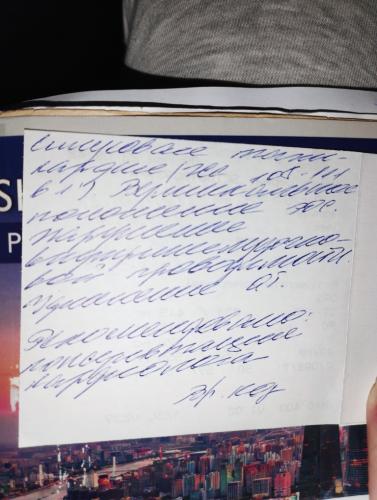 синусовая тахи-
кардия (чсс 108-111
в 1') Вертикальное
положение эос.
Нарушение
внутрижелудочко-
вой проводимости.
Удлинение QT.
Рекомендовано:
консультация
кардиолога
S
P